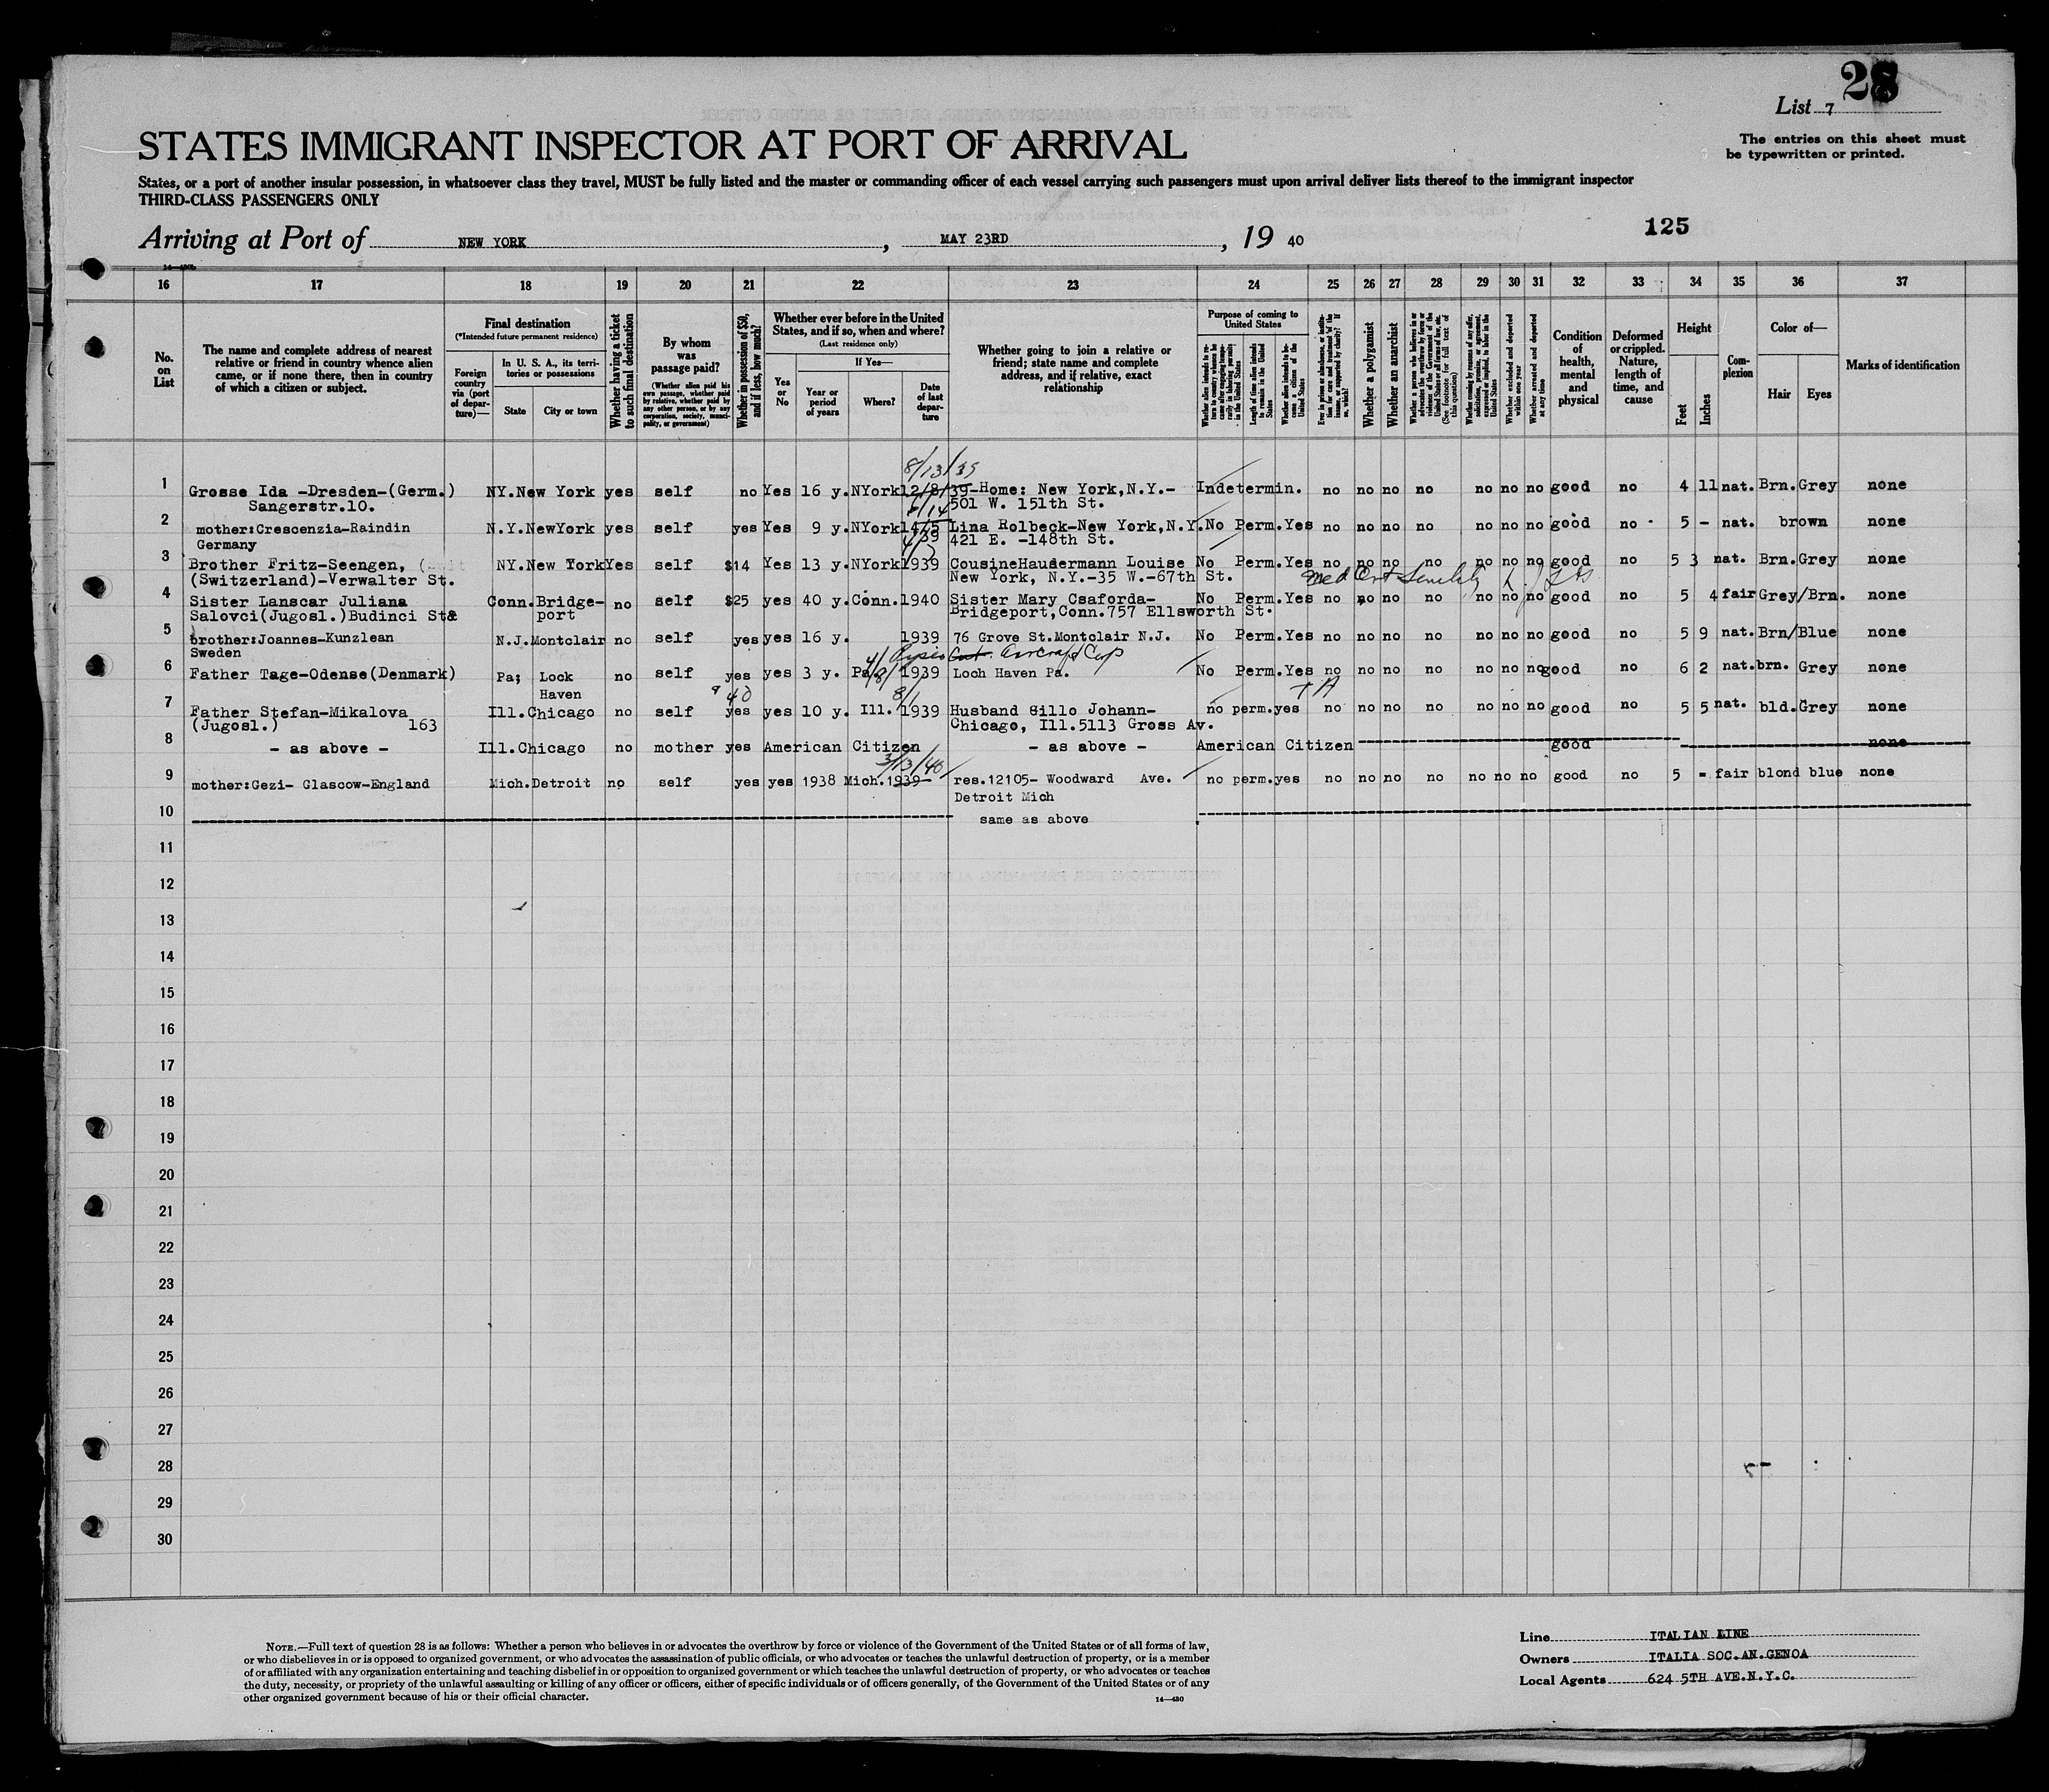 28
List 7
STATES IMMIGRANT INSPECTOR AT PORT OF ARRIVAL
The entries on this sheet must
be typewritten or printed.
States, or a port of another insular possession, in whatsoever class they travel, MUST be fully listed and the master or commanding officer of each vessel carrying such passengers must upon arrival deliver lists thereof to the immigrant inspector
THIRD-CLASS PASSENGERS ONLY
125
Arriving at Port of NEW YORK, MAY 23RD, 19 40
16 17 18 19 20 21 22 23 24 25 26 27 28 29 30 31 32 33 34 35 36 37
No. on List
The name and complete address of nearest relative or friend in country whence alien came, or if none there, then in country of which a citizen or subject.
Final destination
(*Intended future permanent residence)
Foreign country via (port of departure)—
In U. S. A., its territories or possessions
State
City or town
Whether having a ticket to such final destination
By whom was passage paid?
(Whether alien paid his own passage, whether paid by relative, whether paid by any other person, or by any corporation, society, municipality, or government)
Whether in possession of $50, and if less, how much?
Whether ever before in the United States, and if so, when and where?
(Last residence only)
Yes or No
If Yes—
Year or period of years
Where?
Date of last departure
Whether going to join a relative or friend; state name and complete address, and if relative, exact relationship
Purpose of coming to United States
Length of time alien intends to remain in the United States
Whether alien intends to become a citizen of the United States
Whether a polygamist
Whether an anarchist
Whether excluded and deported within one year
Whether arrested and deported at any time
Condition of health, mental and physical
Deformed or crippled. Nature, length of time, and cause
Height
Feet
Inches
Complexion
Color of—
Hair
Eyes
Marks of identification
8/13/39
1 Grosse Ida -Dresden-(Germ.) NY. New York yes self no Yes 16 y. NYork 12/8/39 -Home: New York,N.Y.- Indetermin. no no no no no no no good no 4 11 nat. Brn. Grey none
Sangerstr.10. 501 W. 151th St.
2 mother:Crescenzia-Raindin N.Y. NewYork yes self yes Yes 9 y. NYork Lina Rolbeck-New York,N.Y. No Perm. Yes no no no no no no no good no 5 - nat. brown none
Germany 421 E. -148th St.
3 Brother Fritz-Seengen, NY. New York Yes self $14 Yes 13 y. NYork 1939 CousineHaudermann Louise No Perm. Yes no no no no no no no good no 5 3 nat. Brn. Grey none
(Switzerland)-Verwalter St. New York, N.Y.-35 W.-67th St.
Med Cert Senility
4 Sister Lanscar Juliana Conn. Bridge- no self $25 yes 40 y. Conn. 1940 Sister Mary Csaforda- No Perm. Yes no no no no no no no good no 5 4 fair Grey/Brn. none
Salovci(Jugosl.)Budinci St& port Bridgeport,Conn.757 Ellsworth St.
5 brother:Joannes-Kunzlean N.J. Montclair no self yes yes 16 y. 1939 76 Grove St.Montclair N.J. No Perm. Yes no no no no no no no good no 5 9 nat. Brn/Blue none
Sweden
Aircraft Corp
6 Father Tage-Odense(Denmark) Pa; Lock no self yes yes 3 y. Pa. 1939 Loch Haven Pa. No Perm. Yes no no no no no no no good no 6 2 nat. brn. Grey none
Haven
40 8/1
7 Father Stefan-Mikalova Ill. Chicago no self yes yes 10 y. Ill. 1939 Husband Sillo Johann- no perm. yes no no no no no no no good no 5 5 nat. bld. Grey none
(Jugosl.) 163 Chicago, Ill.5113 Gross Av.
8 - as above - Ill. Chicago no mother yes American Citizen - as above - American Citizen good none
3/13/40
9 mother:Gezi- Glascow-England Mich. Detroit no self yes yes 1938 Mich. 1939 res.12105- Woodward Ave. no perm. yes no no no no no no no good no 5 - fair blond blue none
Detroit Mich
10 same as above
11
12
13
14
15
16
17
18
19
20
21
22
23
24
25
26
27
28
29
30
NOTE.—Full text of question 28 is as follows: Whether a person who believes in or advocates the overthrow by force or violence of the Government of the United States or of all forms of law,
or who disbelieves in or is opposed to organized government, or who advocates the assassination of public officials, or who advocates or teaches the unlawful destruction of property, or is a member
of or affiliated with any organization entertaining and teaching disbelief in or opposition to organized government or which teaches the unlawful destruction of property, or who advocates or teaches
the duty, necessity, or propriety of the unlawful assaulting or killing of any officer or officers, either of specific individuals or of officers generally, of the Government of the United States or of any
other organized government because of his or their official character.
14—430
Line ITALIAN LINE
Owners ITALIA SOC.AN.GENOA
Local Agents 624 5TH AVE.N.Y.C.